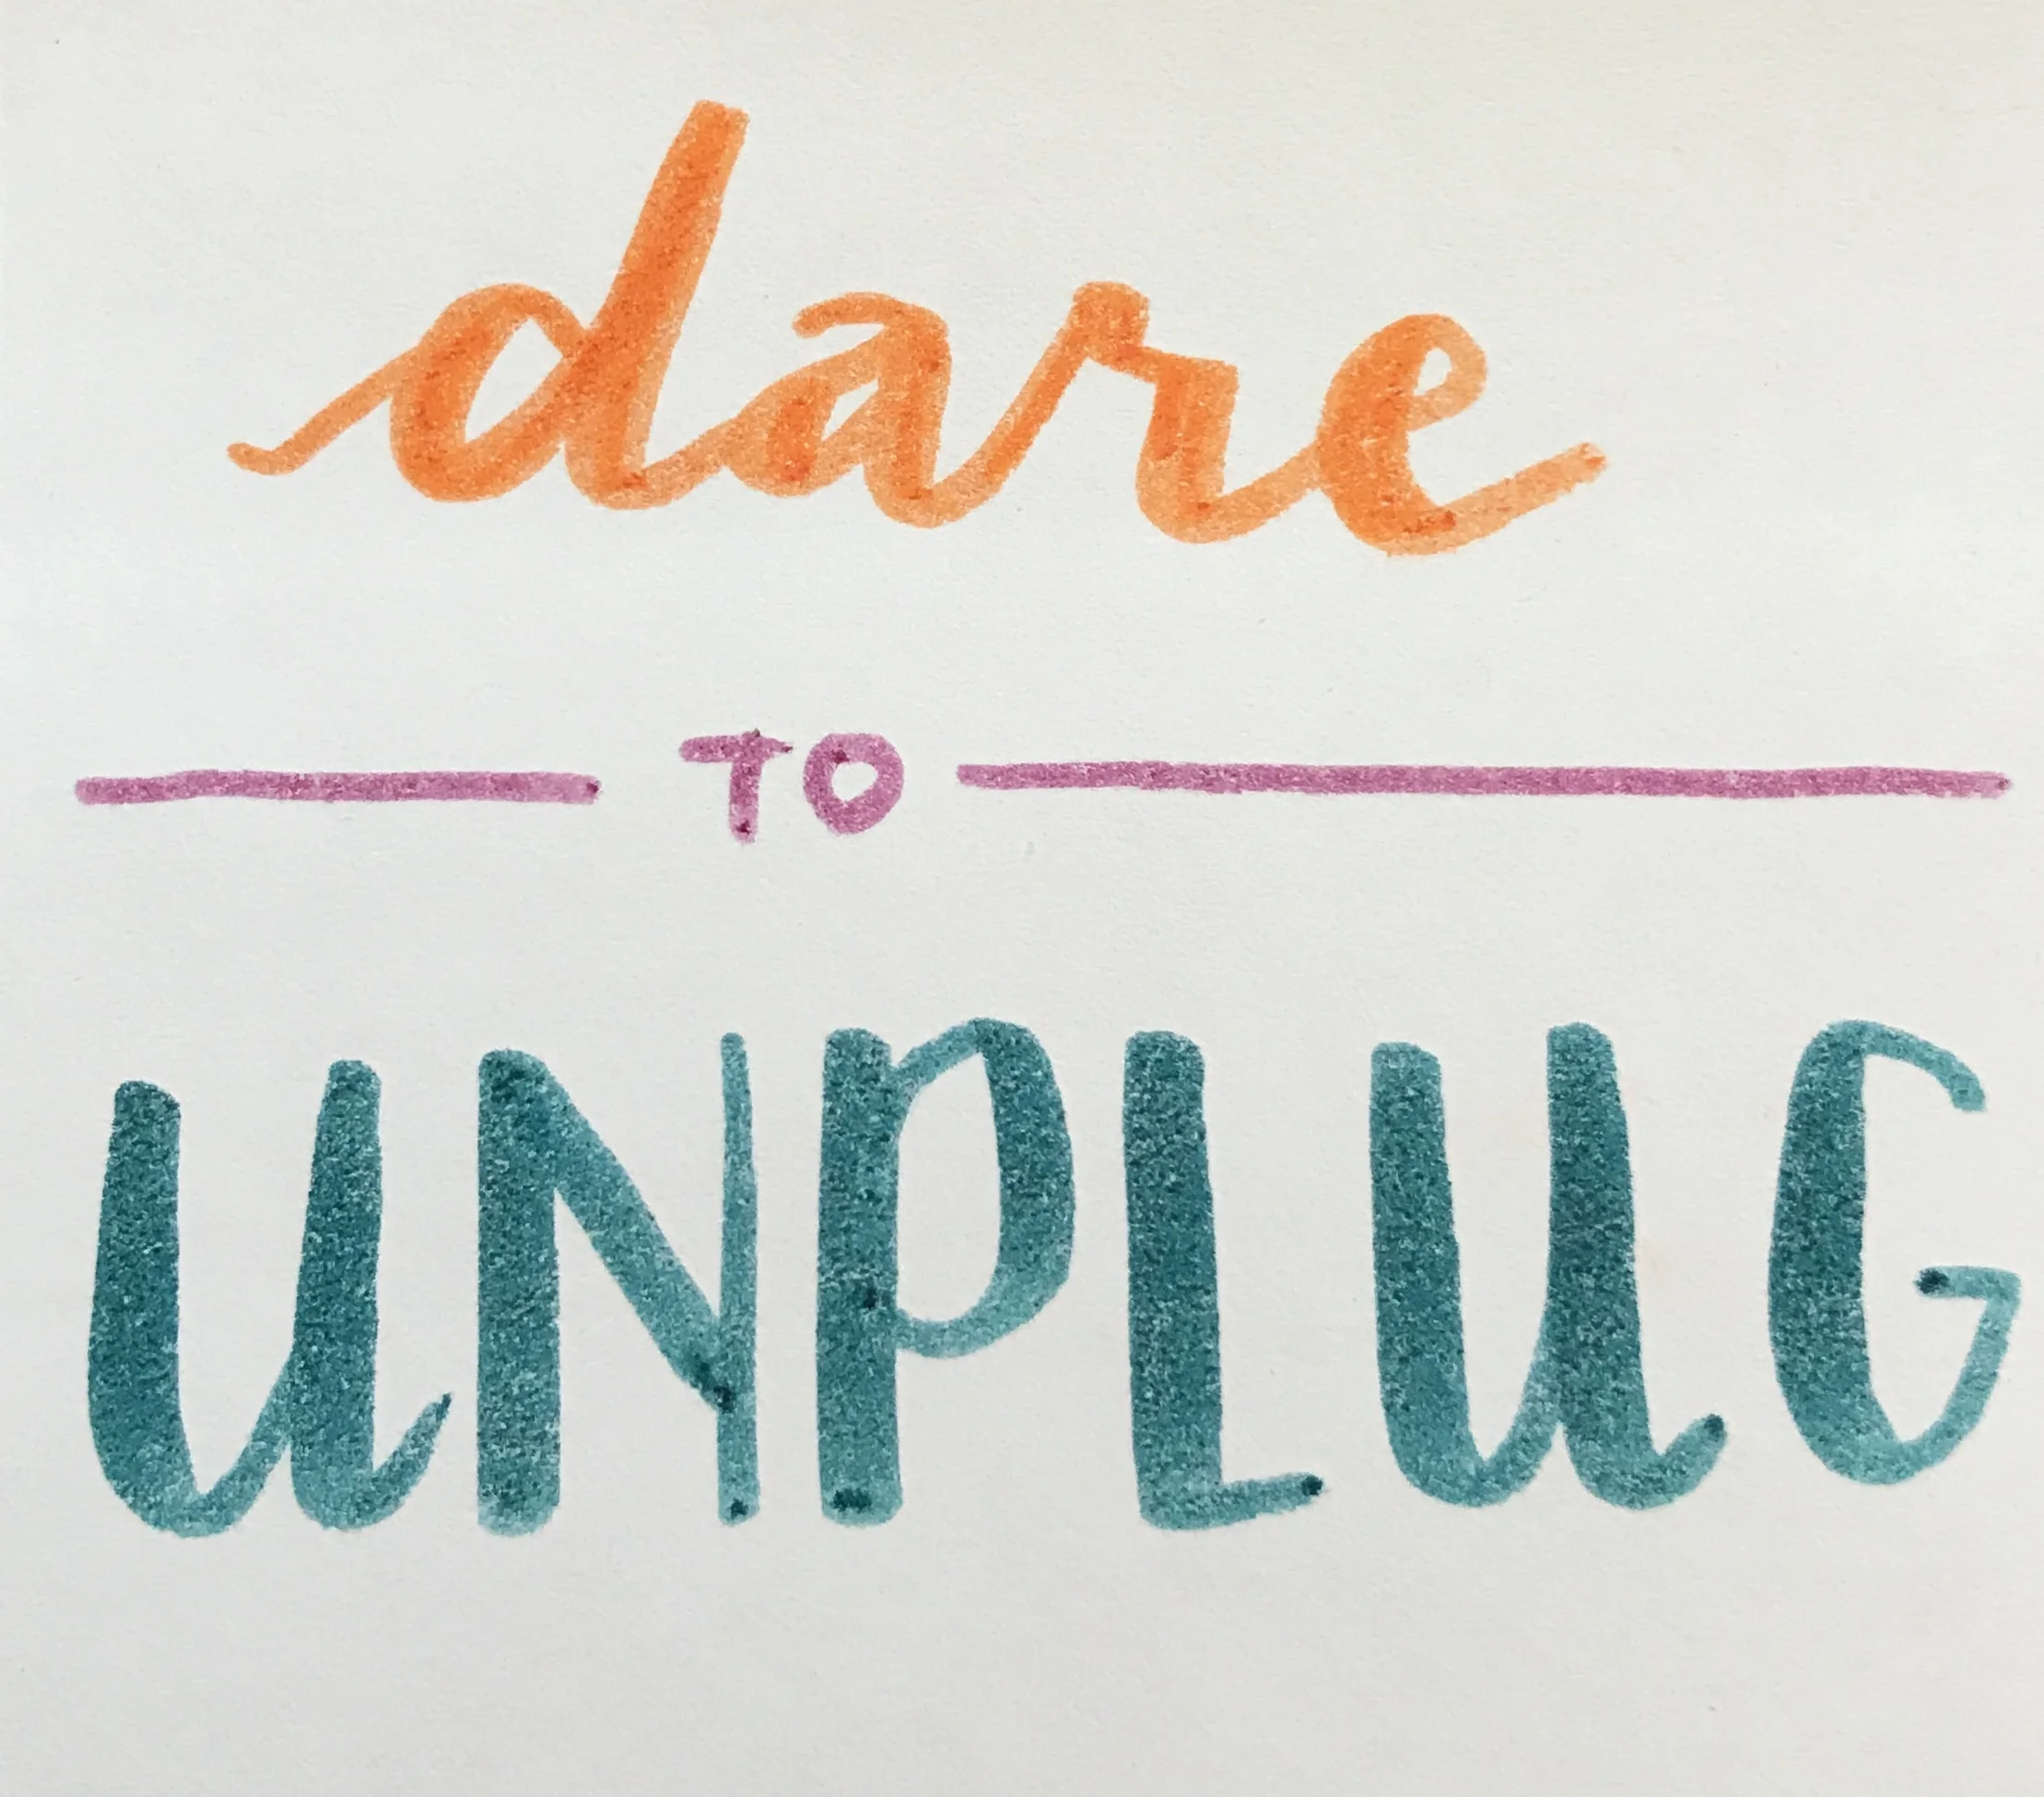 dare
TO
UNPLUG